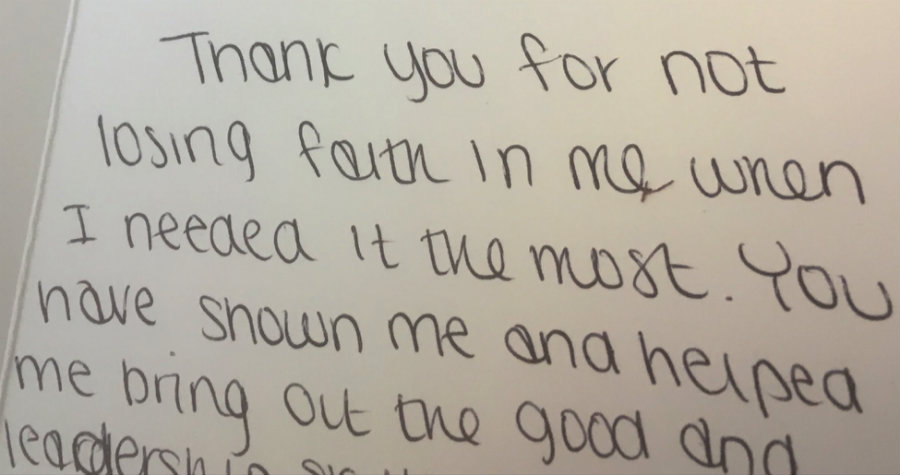 Thank you for not
losing faith in me when
I needed it the most. You
have shown me and helped
me bring out the good and
leadership